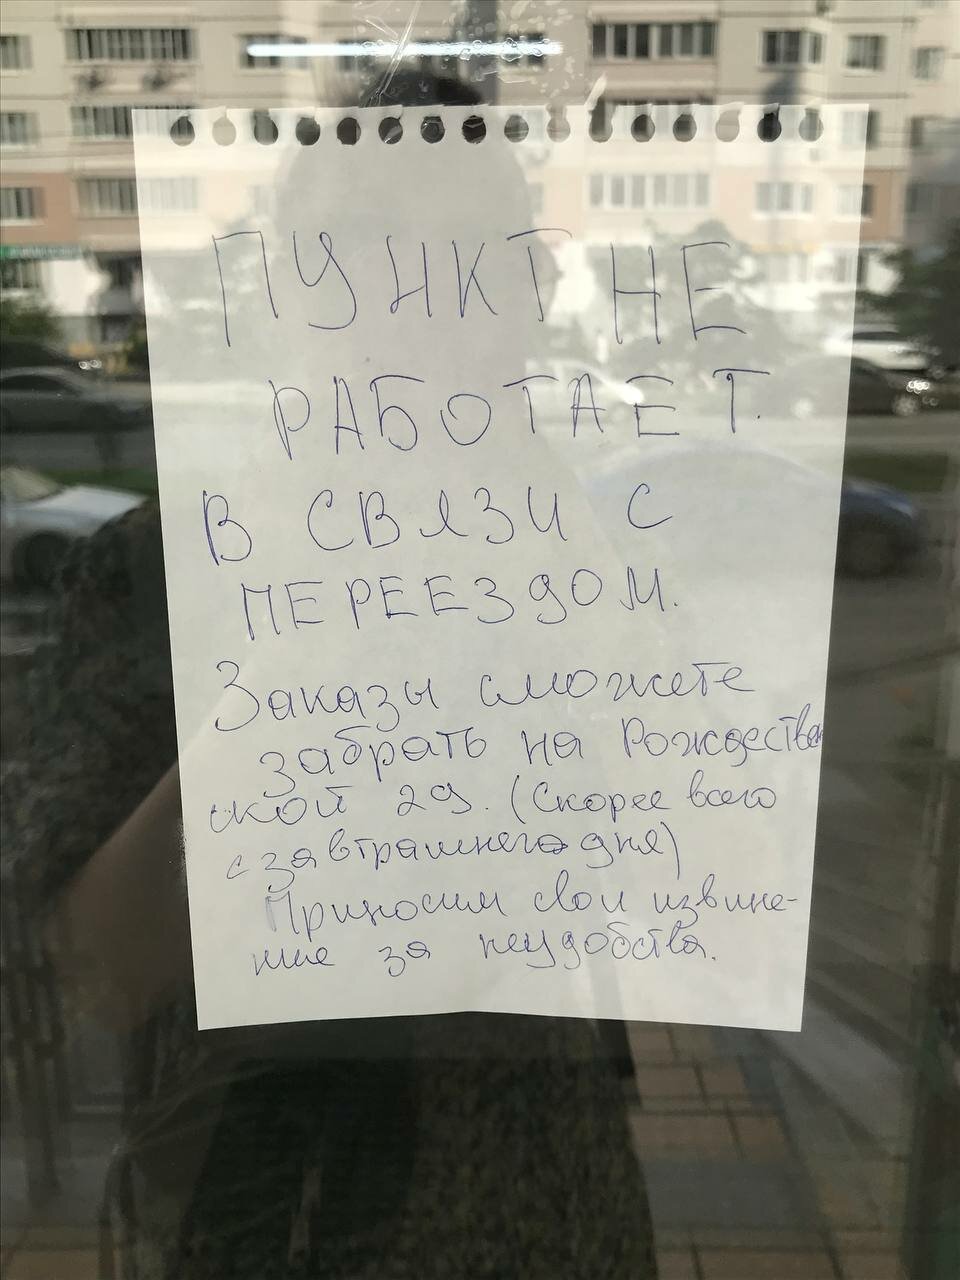 ПУНКТ НЕ
РАБОТАЕТ
В СВЯЗИ С
ПЕРЕЕЗДОМ.
Заказы сможете
забрать на Рождествен
ской 29. (Скорее всего
с завтрашнего дня)
Приносим свои извине-
ние за неудобства.